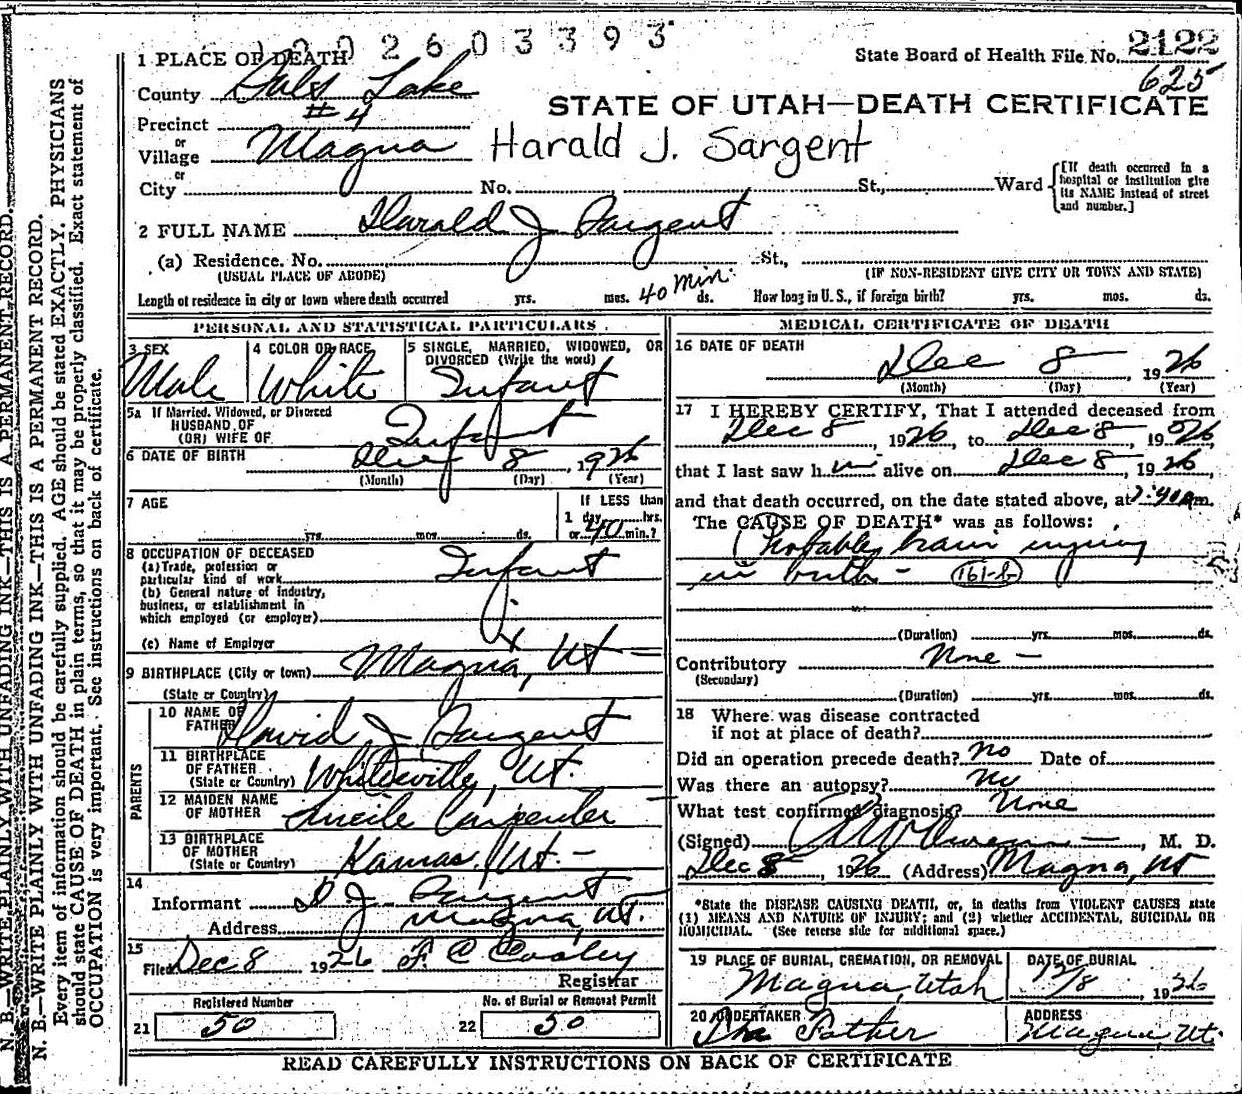 1002603393
State Board of Health File No. 2122
625
1 PLACE OF DEATH
County Salt Lake
STATE OF UTAH—DEATH CERTIFICATE
Precinct #4
or
Village Magna
Harald J. Sargent
or
City No. St., Ward
{[If death occurred in a hospital or institution give its NAME instead of street and number.]
2 FULL NAME Harald J Sargent
(a) Residence. No. St.,
(USUAL PLACE OF ABODE) (IF NON-RESIDENT GIVE CITY OR TOWN AND STATE)
Length of residence in city or town where death occurred yrs. mos. 40 min. ds. How long in U. S., if foreign birth? yrs. mos. ds.
PERSONAL AND STATISTICAL PARTICULARS
3 SEX
Male
4 COLOR OR RACE
White
5 SINGLE, MARRIED, WIDOWED, OR DIVORCED (Write the word)
Infant
5a If Married, Widowed, or Divorced
HUSBAND OF
(OR) WIFE OF
Infant
6 DATE OF BIRTH Dec 8, 1926
(Month) (Day) (Year)
7 AGE
yrs. mos. ds.
If LESS than
1 day hrs.
or 40 min.?
8 OCCUPATION OF DECEASED
(a) Trade, profession or
particular kind of work
Infant
(b) General nature of industry,
business, or establishment in
which employed (or employer)
(c) Name of Employer
9 BIRTHPLACE (City or town) Magna, Ut
(State or Country)
PARENTS
10 NAME OF
FATHER David J Sargent
11 BIRTHPLACE
OF FATHER
(State or Country) Whitesville, Ut.
12 MAIDEN NAME
OF MOTHER Lucile Carpenter
13 BIRTHPLACE
OF MOTHER
(State or Country) Kamas, Ut. —
14
Informant D J Sargent
Address Magna, Ut.
15
Filed Dec 8 1926 F. C Cooley
Registrar
Registered Number
21 50
No. of Burial or Removal Permit
22 50
MEDICAL CERTIFICATE OF DEATH
16 DATE OF DEATH
Dec 8, 1926
(Month) (Day) (Year)
17 I HEREBY CERTIFY, That I attended deceased from
Dec 8, 1926, to Dec 8, 1926
that I last saw him alive on Dec 8, 1926
and that death occurred, on the date stated above, at 7:40 am.
The CAUSE OF DEATH* was as follows:
Probably brain injury
in birth — 161-b
(Duration) yrs. mos. ds.
Contributory None —
(Secondary)
(Duration) yrs. mos. ds.
18 Where was disease contracted
if not at place of death?
Did an operation precede death? No Date of
Was there an autopsy? No
What test confirmed diagnosis? None
(Signed) , M. D.
Dec 8, 1926 (Address) Magna, Ut
*State the DISEASE CAUSING DEATH, or, in deaths from VIOLENT CAUSES state
(1) MEANS AND NATURE OF INJURY; and (2) whether ACCIDENTAL, SUICIDAL OR
HOMICIDAL. (See reverse side for additional space.)
19 PLACE OF BURIAL, CREMATION, OR REMOVAL
Magna, Utah
DATE OF BURIAL
12/8, 1926
20 UNDERTAKER
The Father
ADDRESS
Magna, Ut.
READ CAREFULLY INSTRUCTIONS ON BACK OF CERTIFICATE
N. B.—WRITE PLAINLY WITH UNFADING INK—THIS IS A PERMANENT RECORD.
N. B.—WRITE PLAINLY WITH UNFADING INK—THIS IS A PERMANENT RECORD.
Every item of information should be carefully supplied. AGE should be stated EXACTLY. PHYSICIANS
should state CAUSE OF DEATH in plain terms, so that it may be properly classified. Exact statement of
OCCUPATION is very important. See instructions on back of certificate.